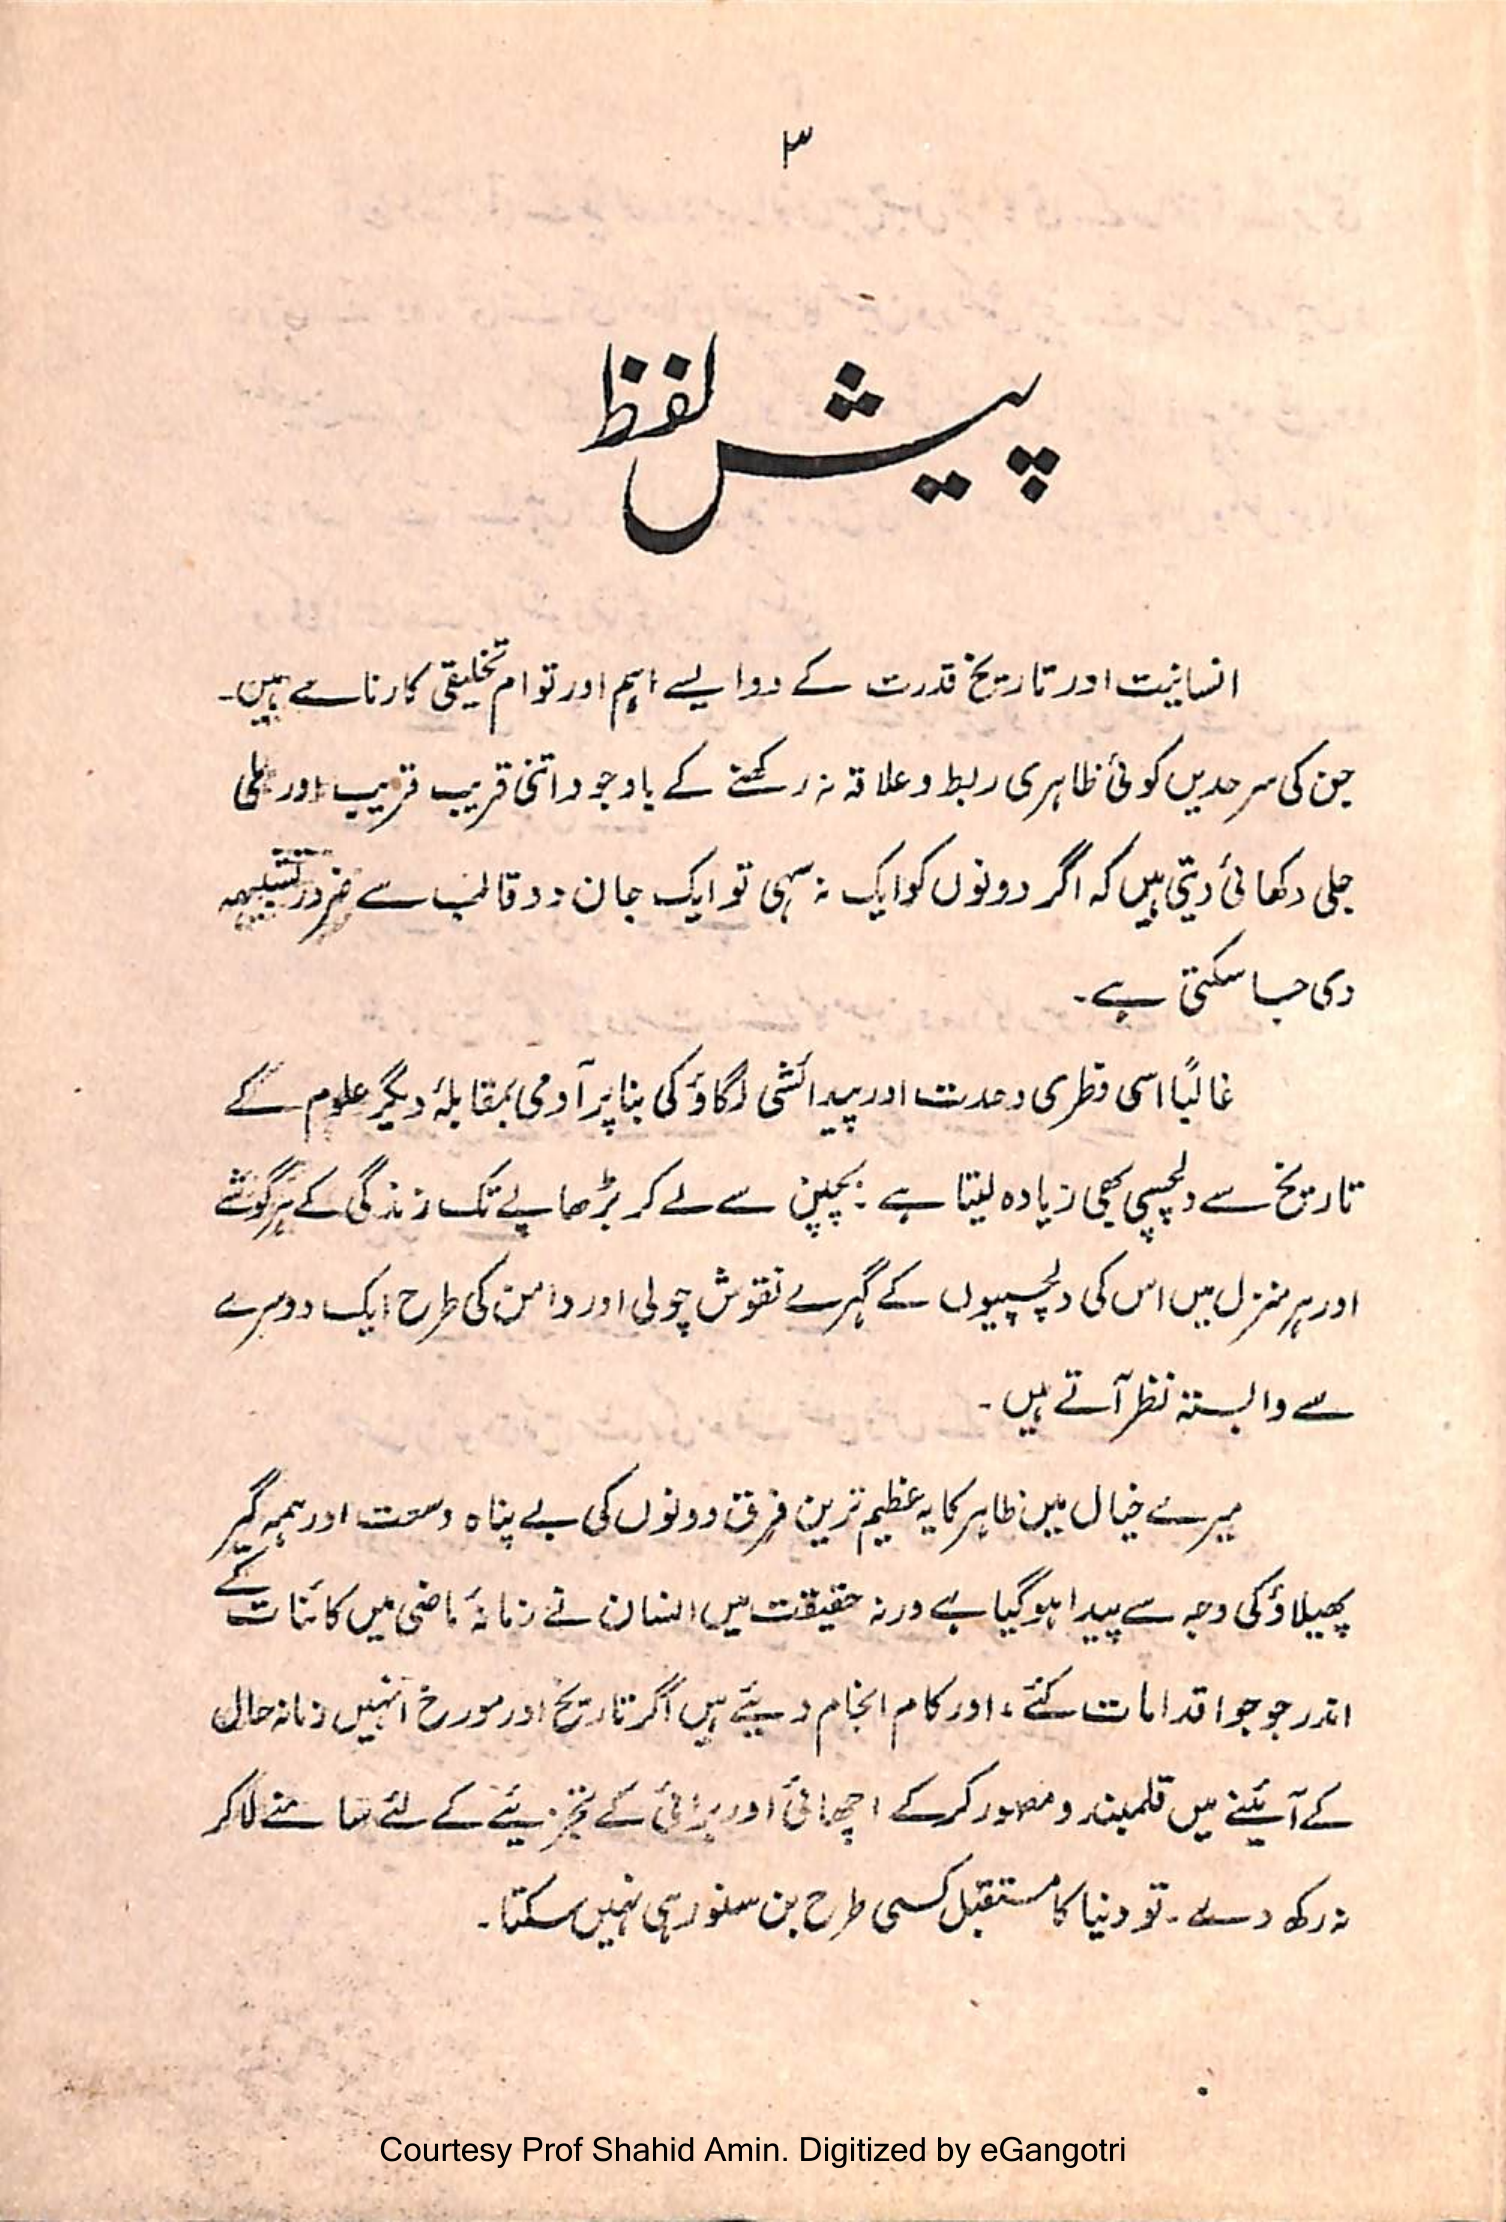 ۳
پیش لفظ
انسانیت اور تاریخ قدرت کے دو ایسے اہم اور توام تخلیقی کارنامے ہیں۔
جن کی سرحدیں کوئی ظاہری ربط و علاقہ نہ رکھنے کے باوجود اتنی قریب قریب اور ملی
جلی دکھائی دیتی ہیں کہ اگر دونوں کو ایک نہ سہی تو ایک جان دو قالب سے ضرور تشبیہہ
دی جا سکتی ہے۔
غالباً اسی فطری وحدت اور پیدائشی لگاؤ کی بنا پر آدمی بمقابلۂ دیگر علوم کے
تاریخ سے دلچسپی بھی زیادہ لیتا ہے۔ بچپن سے لے کر بڑھاپے تک زندگی کے ہر گوشے
اور ہر منزل میں اس کی دلچسپیوں کے گہرے نقوش چولی اور دامن کی طرح ایک دوسرے
سے وابستہ نظر آتے ہیں۔
میرے خیال میں ظاہر کا یہ عظیم ترین فرق دونوں کی بے پناہ وسعت اور ہمہ گیر
پھیلاؤ کی وجہ سے پیدا ہو گیا ہے ورنہ حقیقت میں انسان نے زمانۂ ماضی میں کائنات کے
اندر جو جو اقدامات کئے، اور کام انجام دیئے ہیں اگر تاریخ اور مورخ انہیں زمانہ حال
کے آئینے میں قلمبند و مصور کر کے اچھائی اور برائی کے تجزیئے کے لئے سامنے لا کر
نہ رکھ دے۔ تو دنیا کا مستقبل کسی طرح بن سنور ہی نہیں سکتا۔
Courtesy Prof Shahid Amin. Digitized by eGangotri